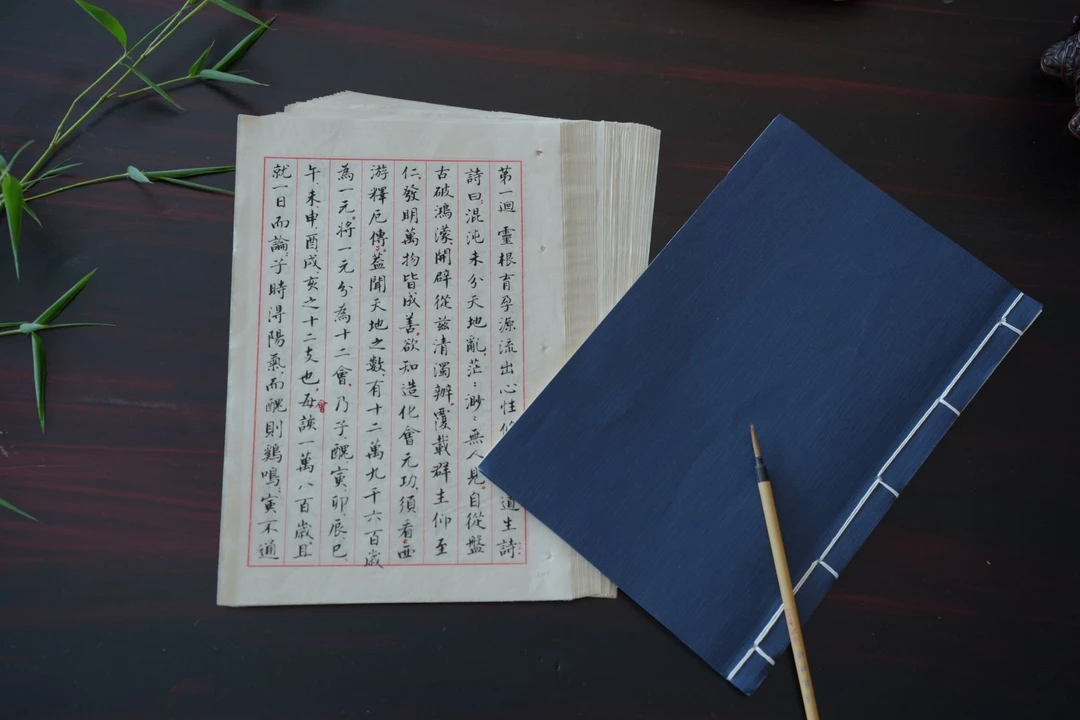 第一迴 靈根育孕源流出心性修道生詩:
詩曰:混沌未分天地亂,茫〻渺〻無人見。自從盤
古破鴻濛,開辟從兹清濁辨。覆載群生仰至
仁,發明萬物皆成善。欲知造化會元功,須看西
游釋厄傳。蓋聞天地之數,有十二萬九千六百歲
為一元。將一元分為十二會,乃子、醜、寅、卯、辰、巳、
午、未、申、酉、戌、亥之十二支也。每會該一萬八百歲。且
就一日而論:子時得陽氣,而醜則鷄鳴;寅不通